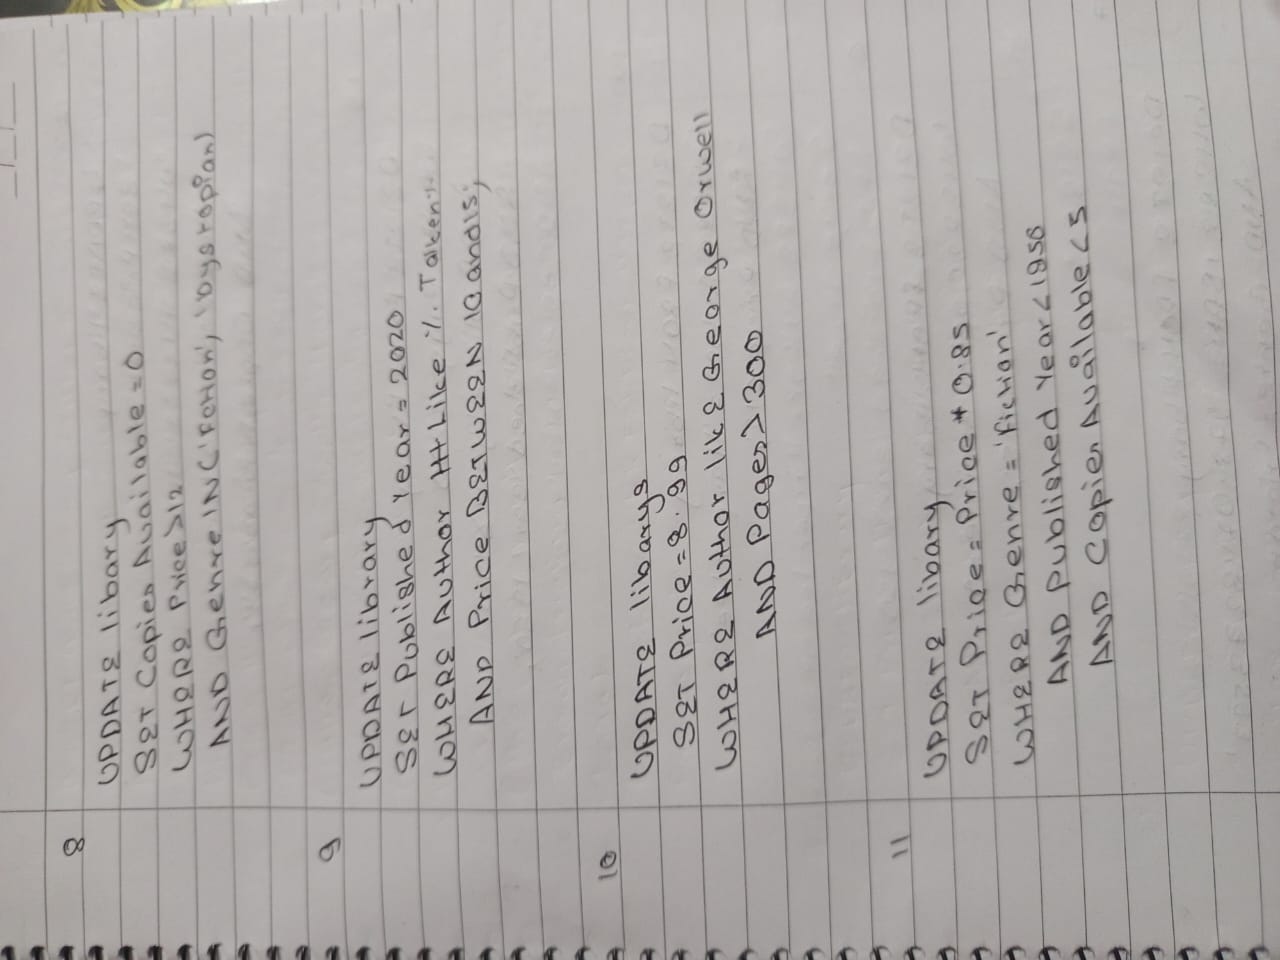 8
UPDATE libary
SET Copies Available = 0
WHERE Price > 12
AND Genre IN ('Fiction', 'Dystopian)
9
UPDATE library
SET Published Year = 2020
WHERE Author Like % Talken%
AND Price BETWEEN 10 and 15;
10
UPDATE librarys
SET Price = 8.99
WHERE Author like George Orwell
AND Pages > 300
11
UPDATE library
SET Price = Price * 0.85
WHERE Genre = 'Fiction'
AND Published Year < 1950
AND Copies Available < 5